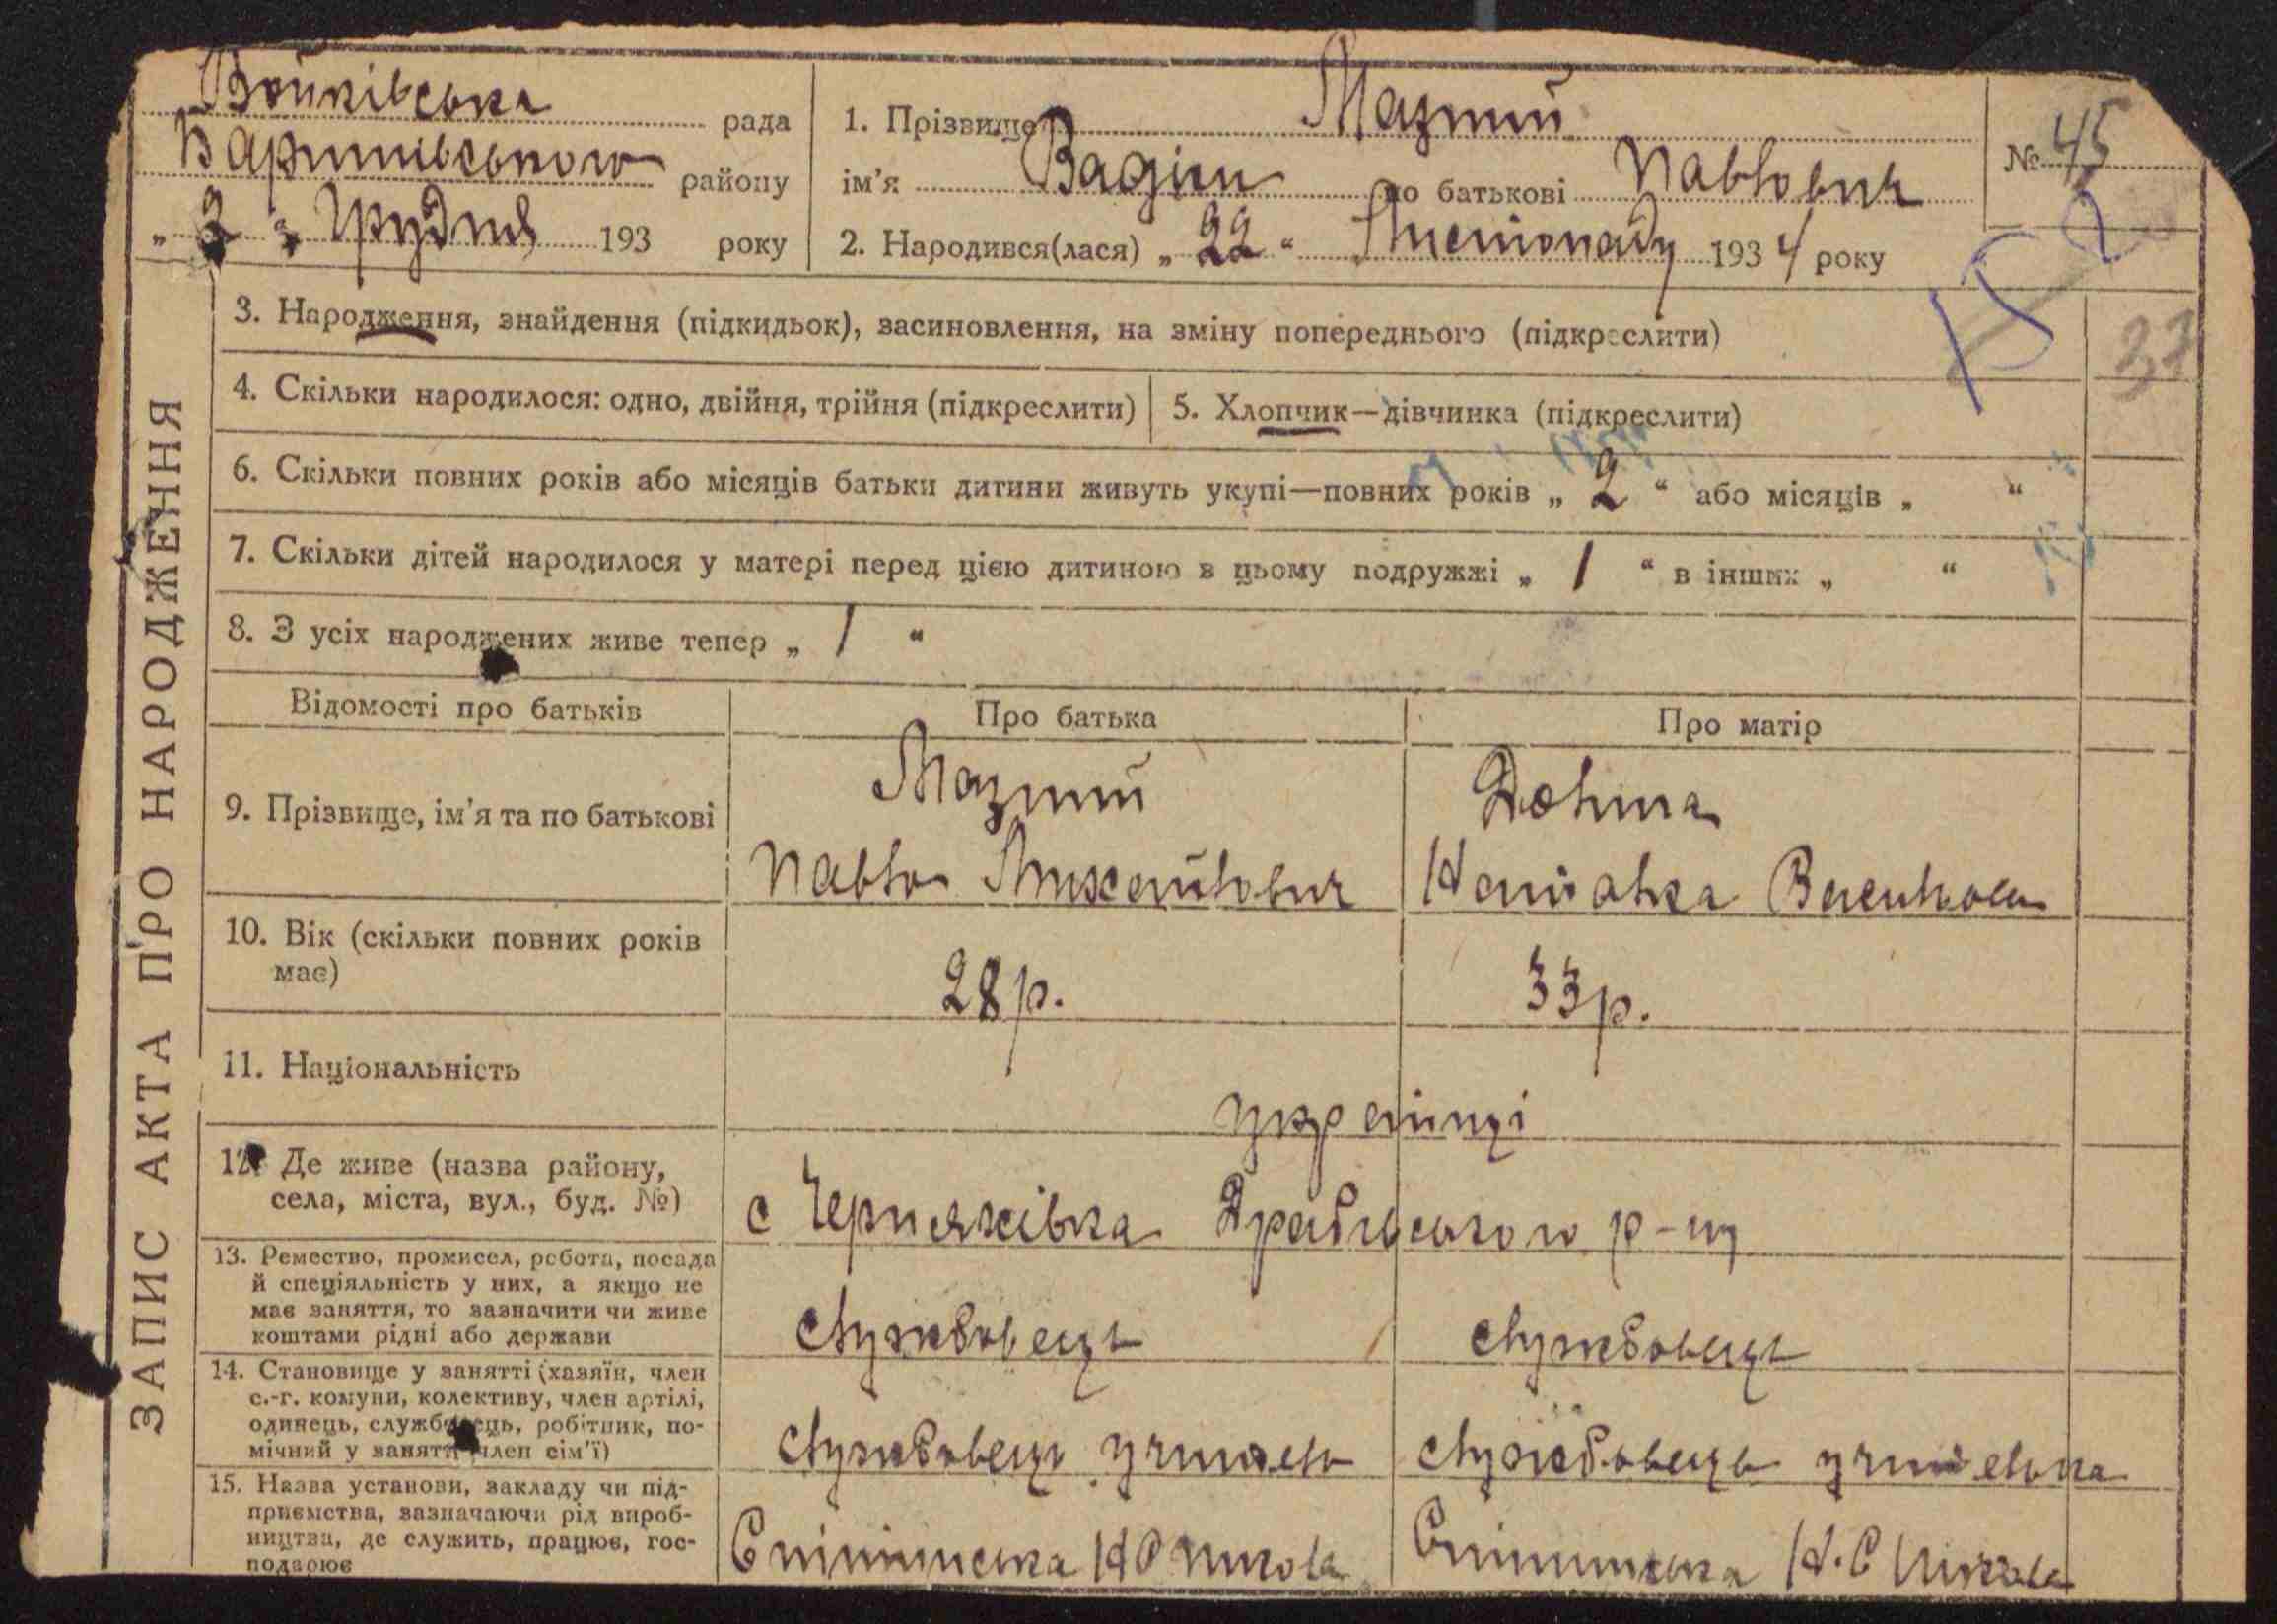 Войківська рада
Баришівського району
„ 2 " Грудня 193 року
1. Прізвище Мазний
ім’я Вадім по батькові Павлович
2. Народився(лася) „ 22 “ Листопаду 1934 року
№ 45
3. Народження, знайдення (підкидьок), засиновлення, на зміну попереднього (підкреслити)
37
4. Скільки народилося: одно, двійня, трійня (підкреслити)
5. Хлопчик—дівчинка (підкреслити)
6. Скільки повних років або місяців батьки дитини живуть укупі—повних років „ 2 “ або місяців „ “
7. Скільки дітей народилося у матері перед цією дитиною в цьому подружжі „ 1 “ в інших „ “
8. З усіх народжених живе тепер „ 1 “
ЗАПИС АКТА ПРО НАРОДЖЕННЯ
Відомості про батьків
Про батька
Про матір
9. Прізвище, ім’я та по батькові
Мазний
Павло
Наталка
10. Вік (скільки повних років
має)
28 р.
33 р.
11. Національність
українці
12. Де живе (назва району,
села, міста, вул., буд. №)
с Черняхівка р-ну
13. Ремество, промисел, робота, посада
й спеціяльність у них, а якщо не
має заняття, то зазначити чи живе
коштами рідні або держави
службовець
службовець
14. Становище у занятті (хазяїн, член
с.-г. комуни, колективу, член артілі,
одинець, службовець, робітник, по-
мічний у занятті член сім’ї)
службовець учитель
службовець учителька
15. Назва установи, закладу чи під-
приємства, зазначаючи рід вироб-
ництва, де служить, працює, гос-
подарює
Н С школа
Н. С школа